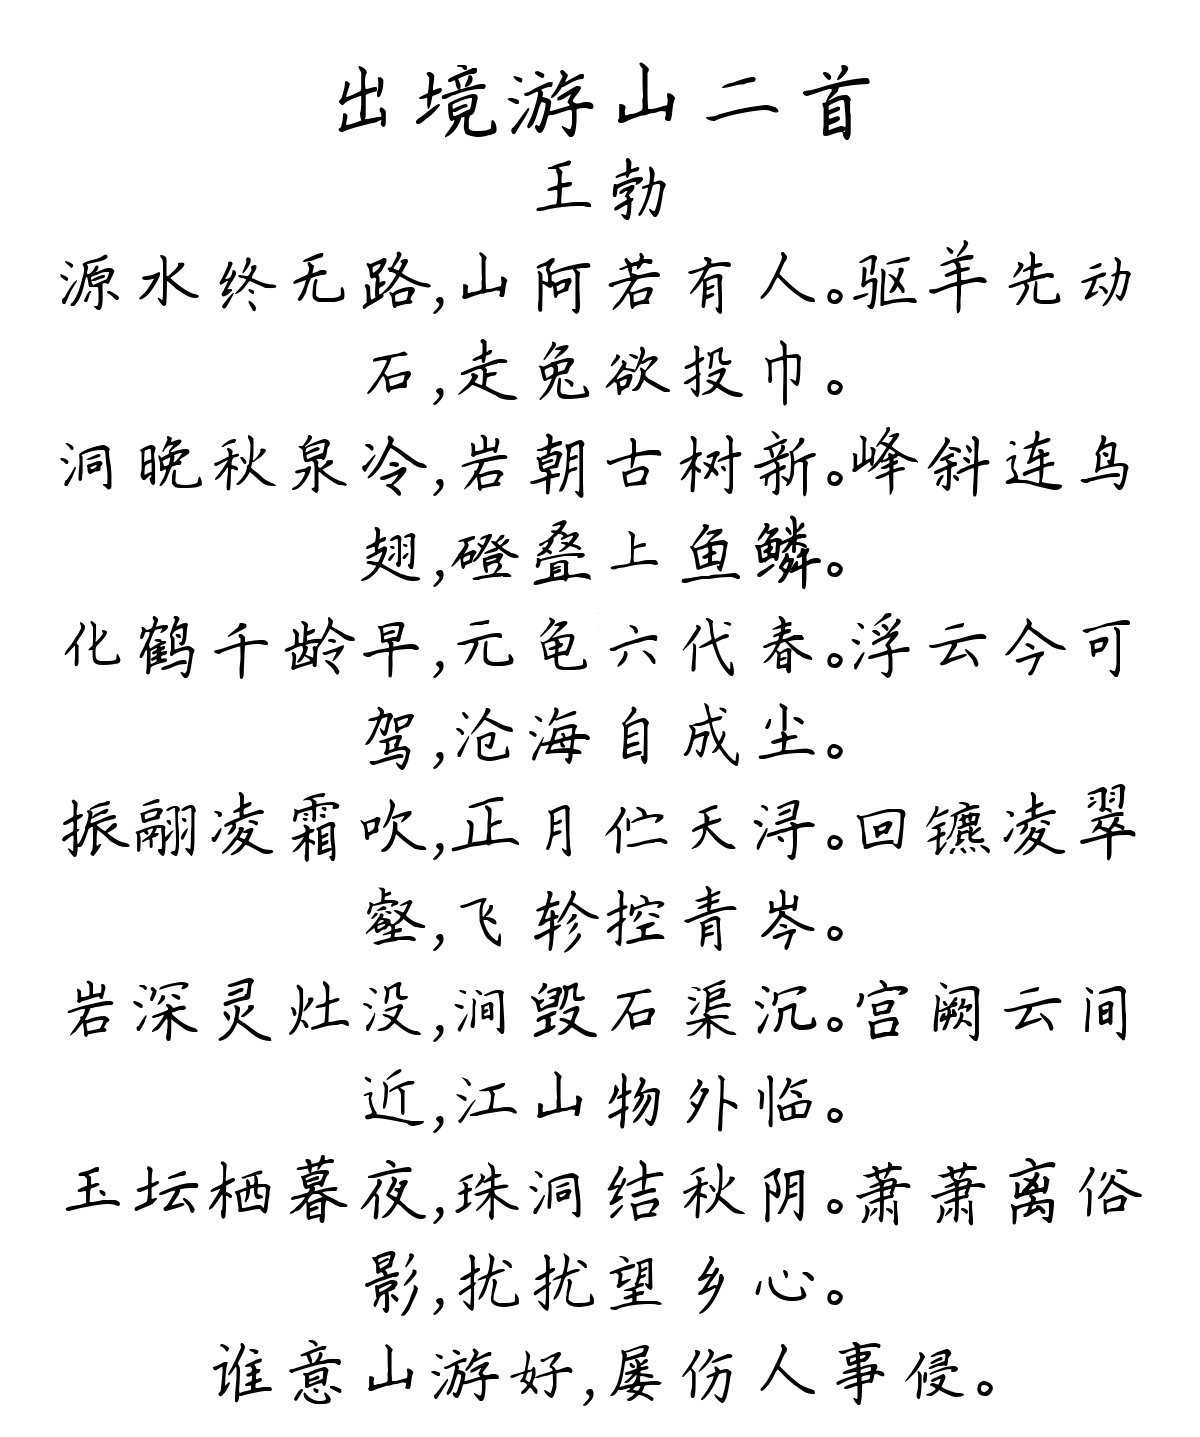 出境游山二首
王勃
源水终无路,山阿若有人。驱羊先动
石,走兔欲投巾。
洞晚秋泉冷,岩朝古树新。峰斜连鸟
翅,磴叠上鱼鳞。
化鹤千龄早,元龟六代春。浮云今可
驾,沧海自成尘。
振翮凌霜吹,正月伫天浔。回镳凌翠
壑,飞轸控青岑。
岩深灵灶没,涧毁石渠沉。宫阙云间
近,江山物外临。
玉坛栖暮夜,珠洞结秋阴。萧萧离俗
影,扰扰望乡心。
谁意山游好,屡伤人事侵。